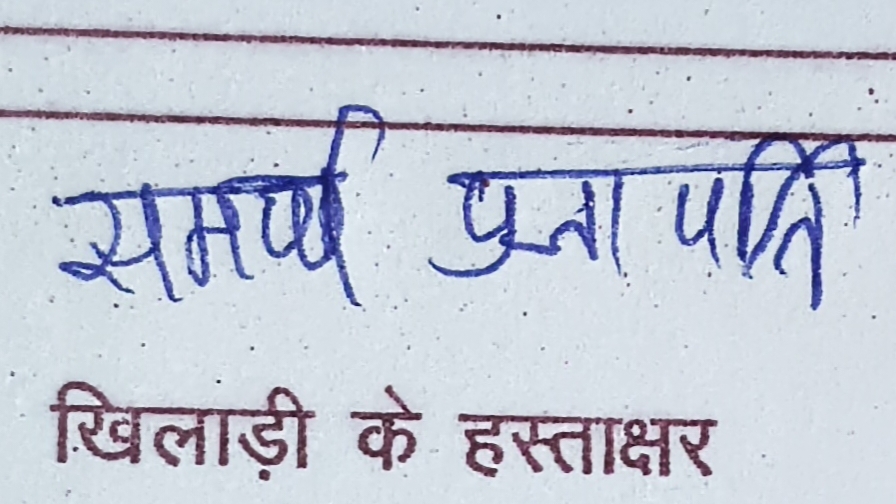 समर्थ प्रजापति
खिलाड़ी के हस्ताक्षर